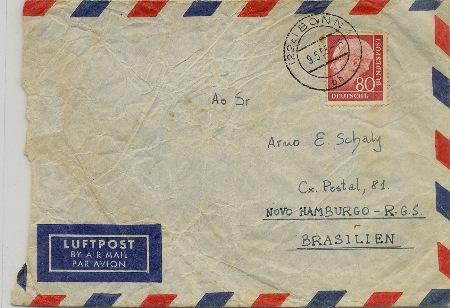 (22c) BONN
9.5.
80
DEUTSCHE BUNDESPOST
Ao Sr
Arno E. Schaly
Cx. Postal, 81.
NOVO HAMBURGO - R.G.S.
BRASILIEN
LUFTPOST
BY AIR MAIL
PAR AVION